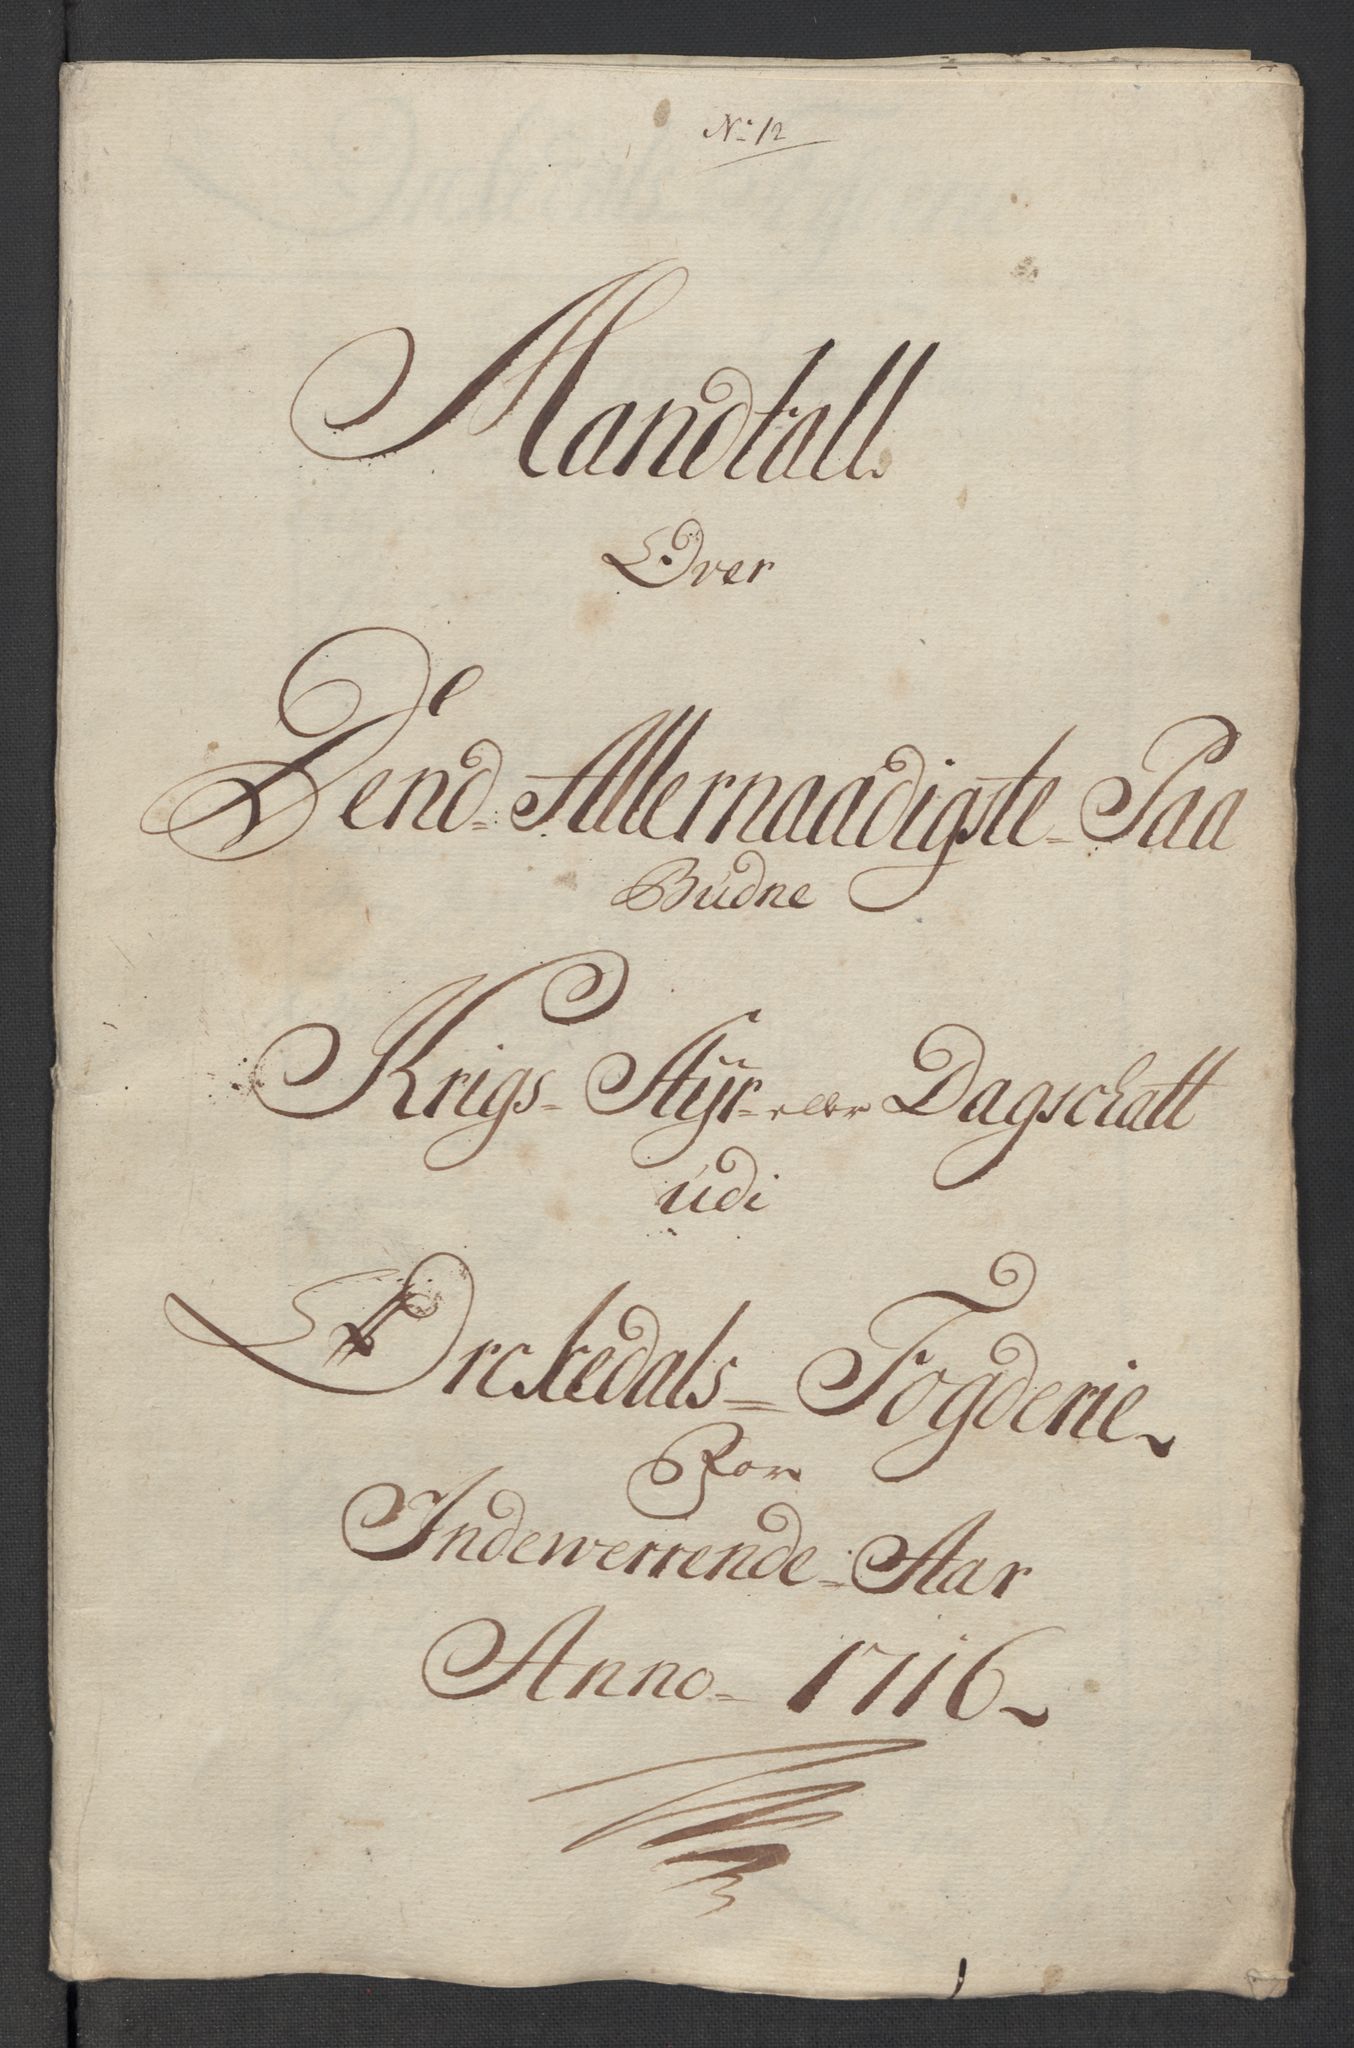 No 12
Mandtall
Over
Dend Allernaadigste Paa
Budne
Krigs Styr eller Dagschatt
udi
Orckedals Fogderie
For
Indewerrende Aar
Anno 1716